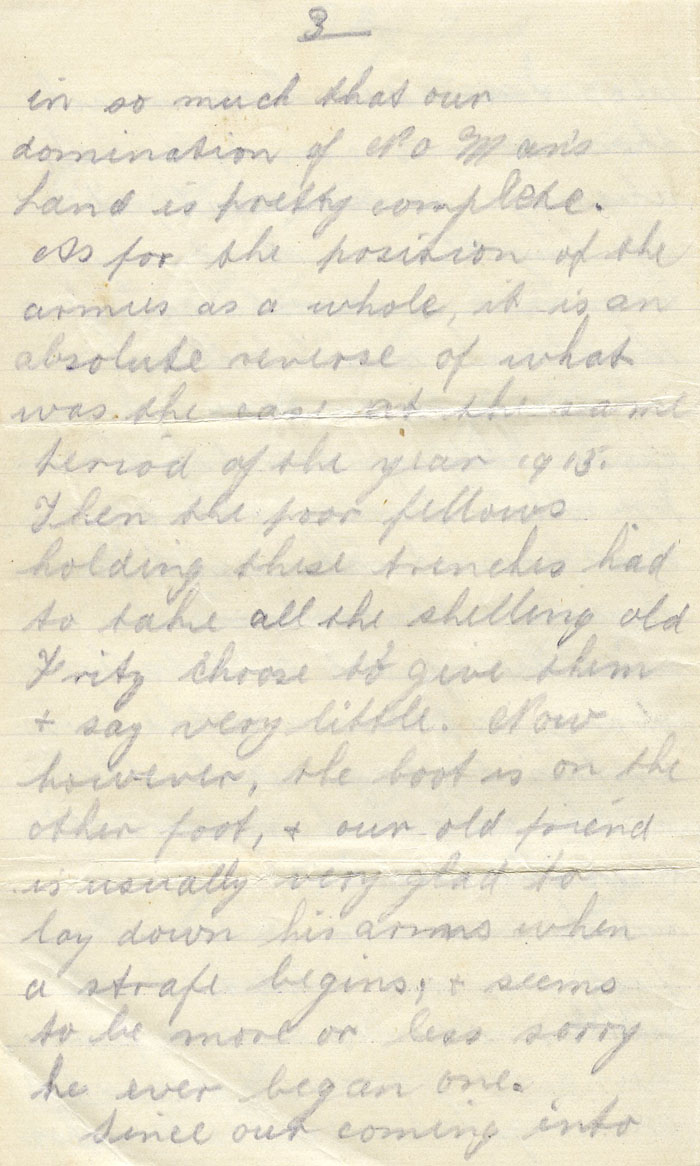 3
in so much that our
domination of No Man's
Land is pretty complete.
As for the position of the
armies as a whole, it is an
absolute reverse of what
was the case at the same
period of the year 1915.
Then the poor fellows
holding these trenches had
to take all the shelling old
Fritz choose to give them
+ say very little. Now
however, the boot is on the
other foot, + our old friend
is usually very glad to
lay down his arms when
a strafe begins, + seems
to be more or less sorry
he ever began one.
Since our coming into